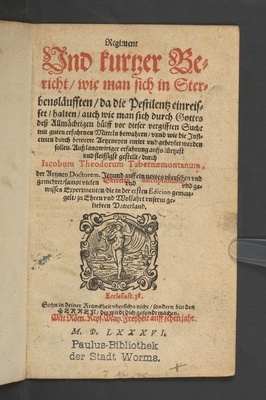 Regiment
Vnd kurtzer Be-
richt / wie man sich in Ster-
bensläufften / da die Pestilentz einreis-
set / halten / auch wie man sich durch Gottes
deß Allmächtigen hülff vor dieser vergifften Sucht
mit guten erfahrnen Mitteln bewahren / vnnd wie die
einen durch bewerte Artzeneyen curirt vnd geholffen werden
sollen. Auß langwiriger erfahrung auffs kürtzest
vnd fleissigst gestelt / durch
Iacobum Theodorum Tabernæmontanum,
der Artzney Doctorem. Jetzund auff ein newes vbersehen vnd
gemehret / sampt vielen
vnd ge-
wissen Experimenten / die in der ersten Edition geman-
gelt / zu Ehren vnd Wolfahrt vnserm ge-
liebten Vatterland.
Ecclesiast. 38.
Sohn in deiner Kranckheit verachte nicht / sondern bitt den
HERREN / der wirdt dich gesundt machen.
Mit Röm. Keys. May. Freyheit auff zehen jahr.
M. D. LXXXVI.
Paulus-Bibliothek
der Stadt Worms.